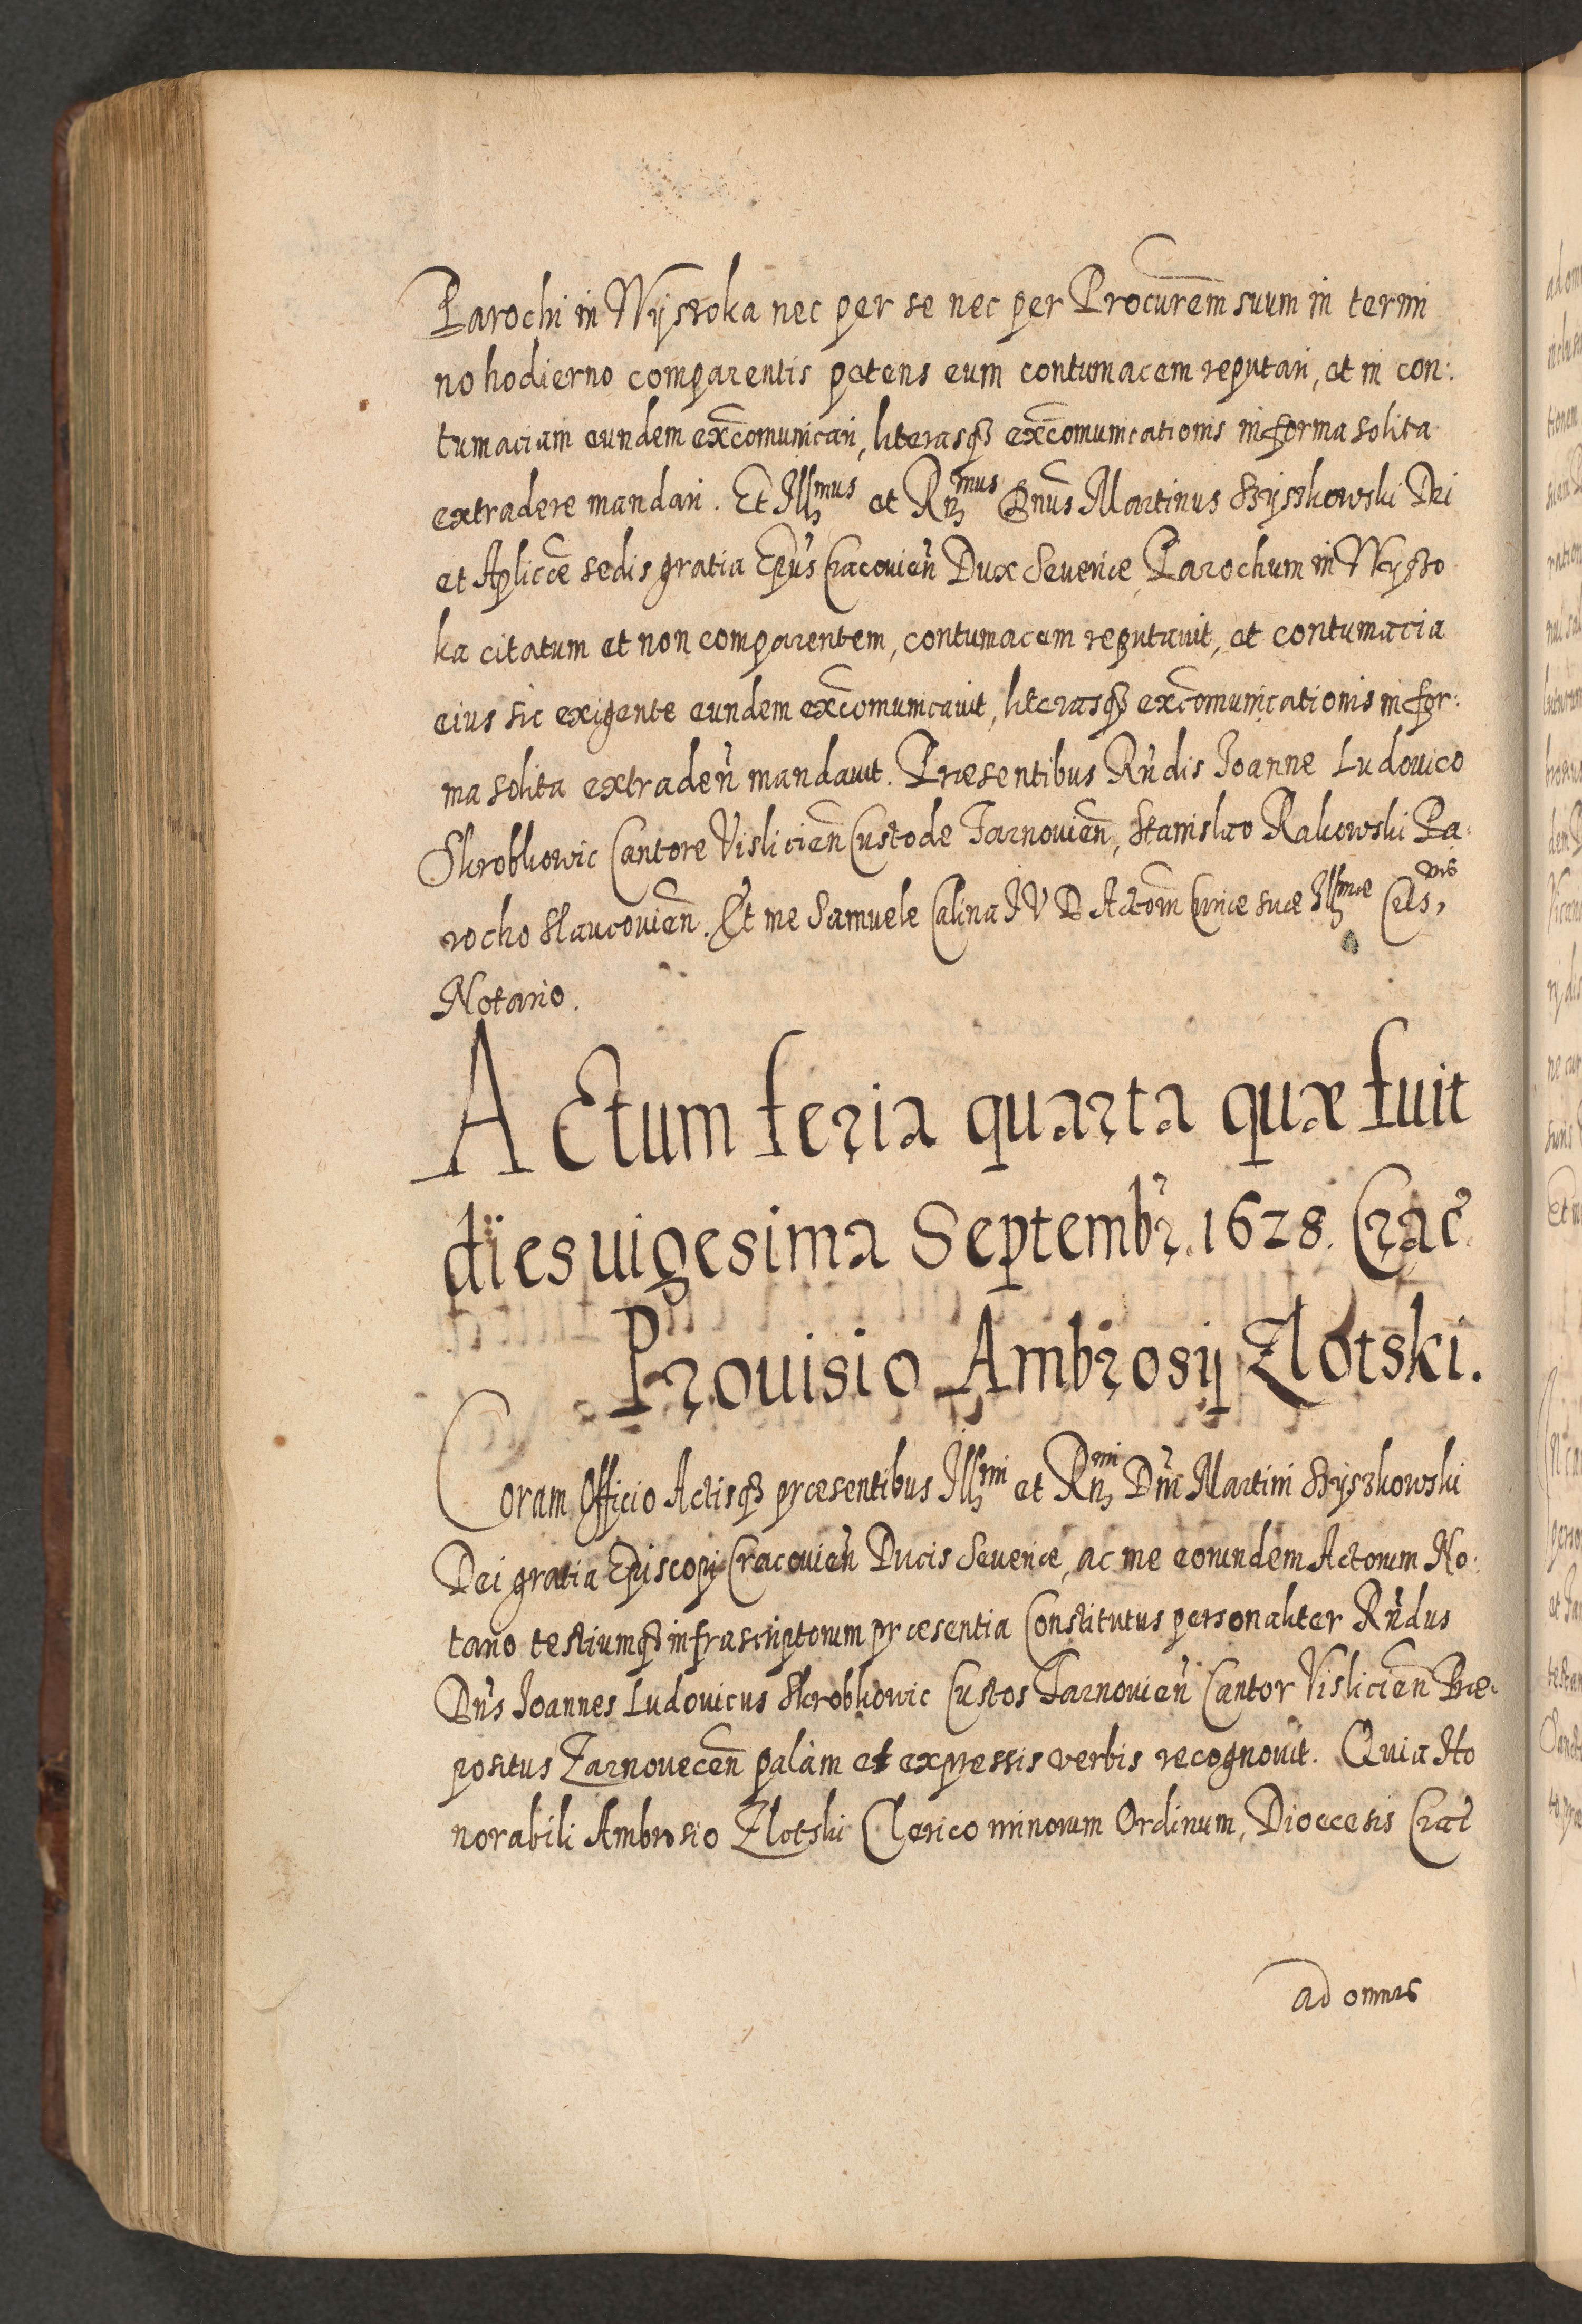 Parochi in Wysoka nec per se nec per Procurem̄ suum in termi
no hodierno comparentis petens eum contumacem reputari, et in con:
tumaciam eundem excomunicari, literasq3 excomunicationis in forma solita
extradere mandari. Et Illmus et Rnmus Dnus Martinus Szyszkowski Dei
et Aplicæ sedis gratia Epus Cracovien Dux Severiæ, Parochum in Wyszo
ka citatum et non comparentem, contumacem reputavit, et contumacia
eius sic exigente eundem excomunicavit, literasq3 excomunicationis in for:
ma solita extraden mandavit. Præsentibus Rndis Joanne Ludovico
Skrobkowic Cantore Vislicien Custode Tarnovien, Stanislao Rakowski Pa:
rocho Slavcovien. Et me Samuele Calina JVD Actom Curiæ suæ Illmæ Cels,nis
Notario.
Actum feria quarta quæ fuit
dies uigesima Septembr. 1628. Crac.
Prouisio Ambrosij Zlotski.
Coram Officio Actisq3 præsentibus Illmi et Rnmi Dni Martini Szyszkowski
Dei gratia Episcopi Cracouien Ducis Seueriæ, ac me eorundem Actorum No:
tario testiumq3 infrascriptorum præsentia Constitutus personaliter Rndus
Dns Joannes Ludouicus Skrobkowic Custos Tarnouien Cantor Vislicien Præ:
positus Zarnovecen palàm et expressis verbis recognouit. Quia Ho
norabili Ambrosio Zlotski Clerico minorum Ordinum, Dioecesis Crac
ad omnes